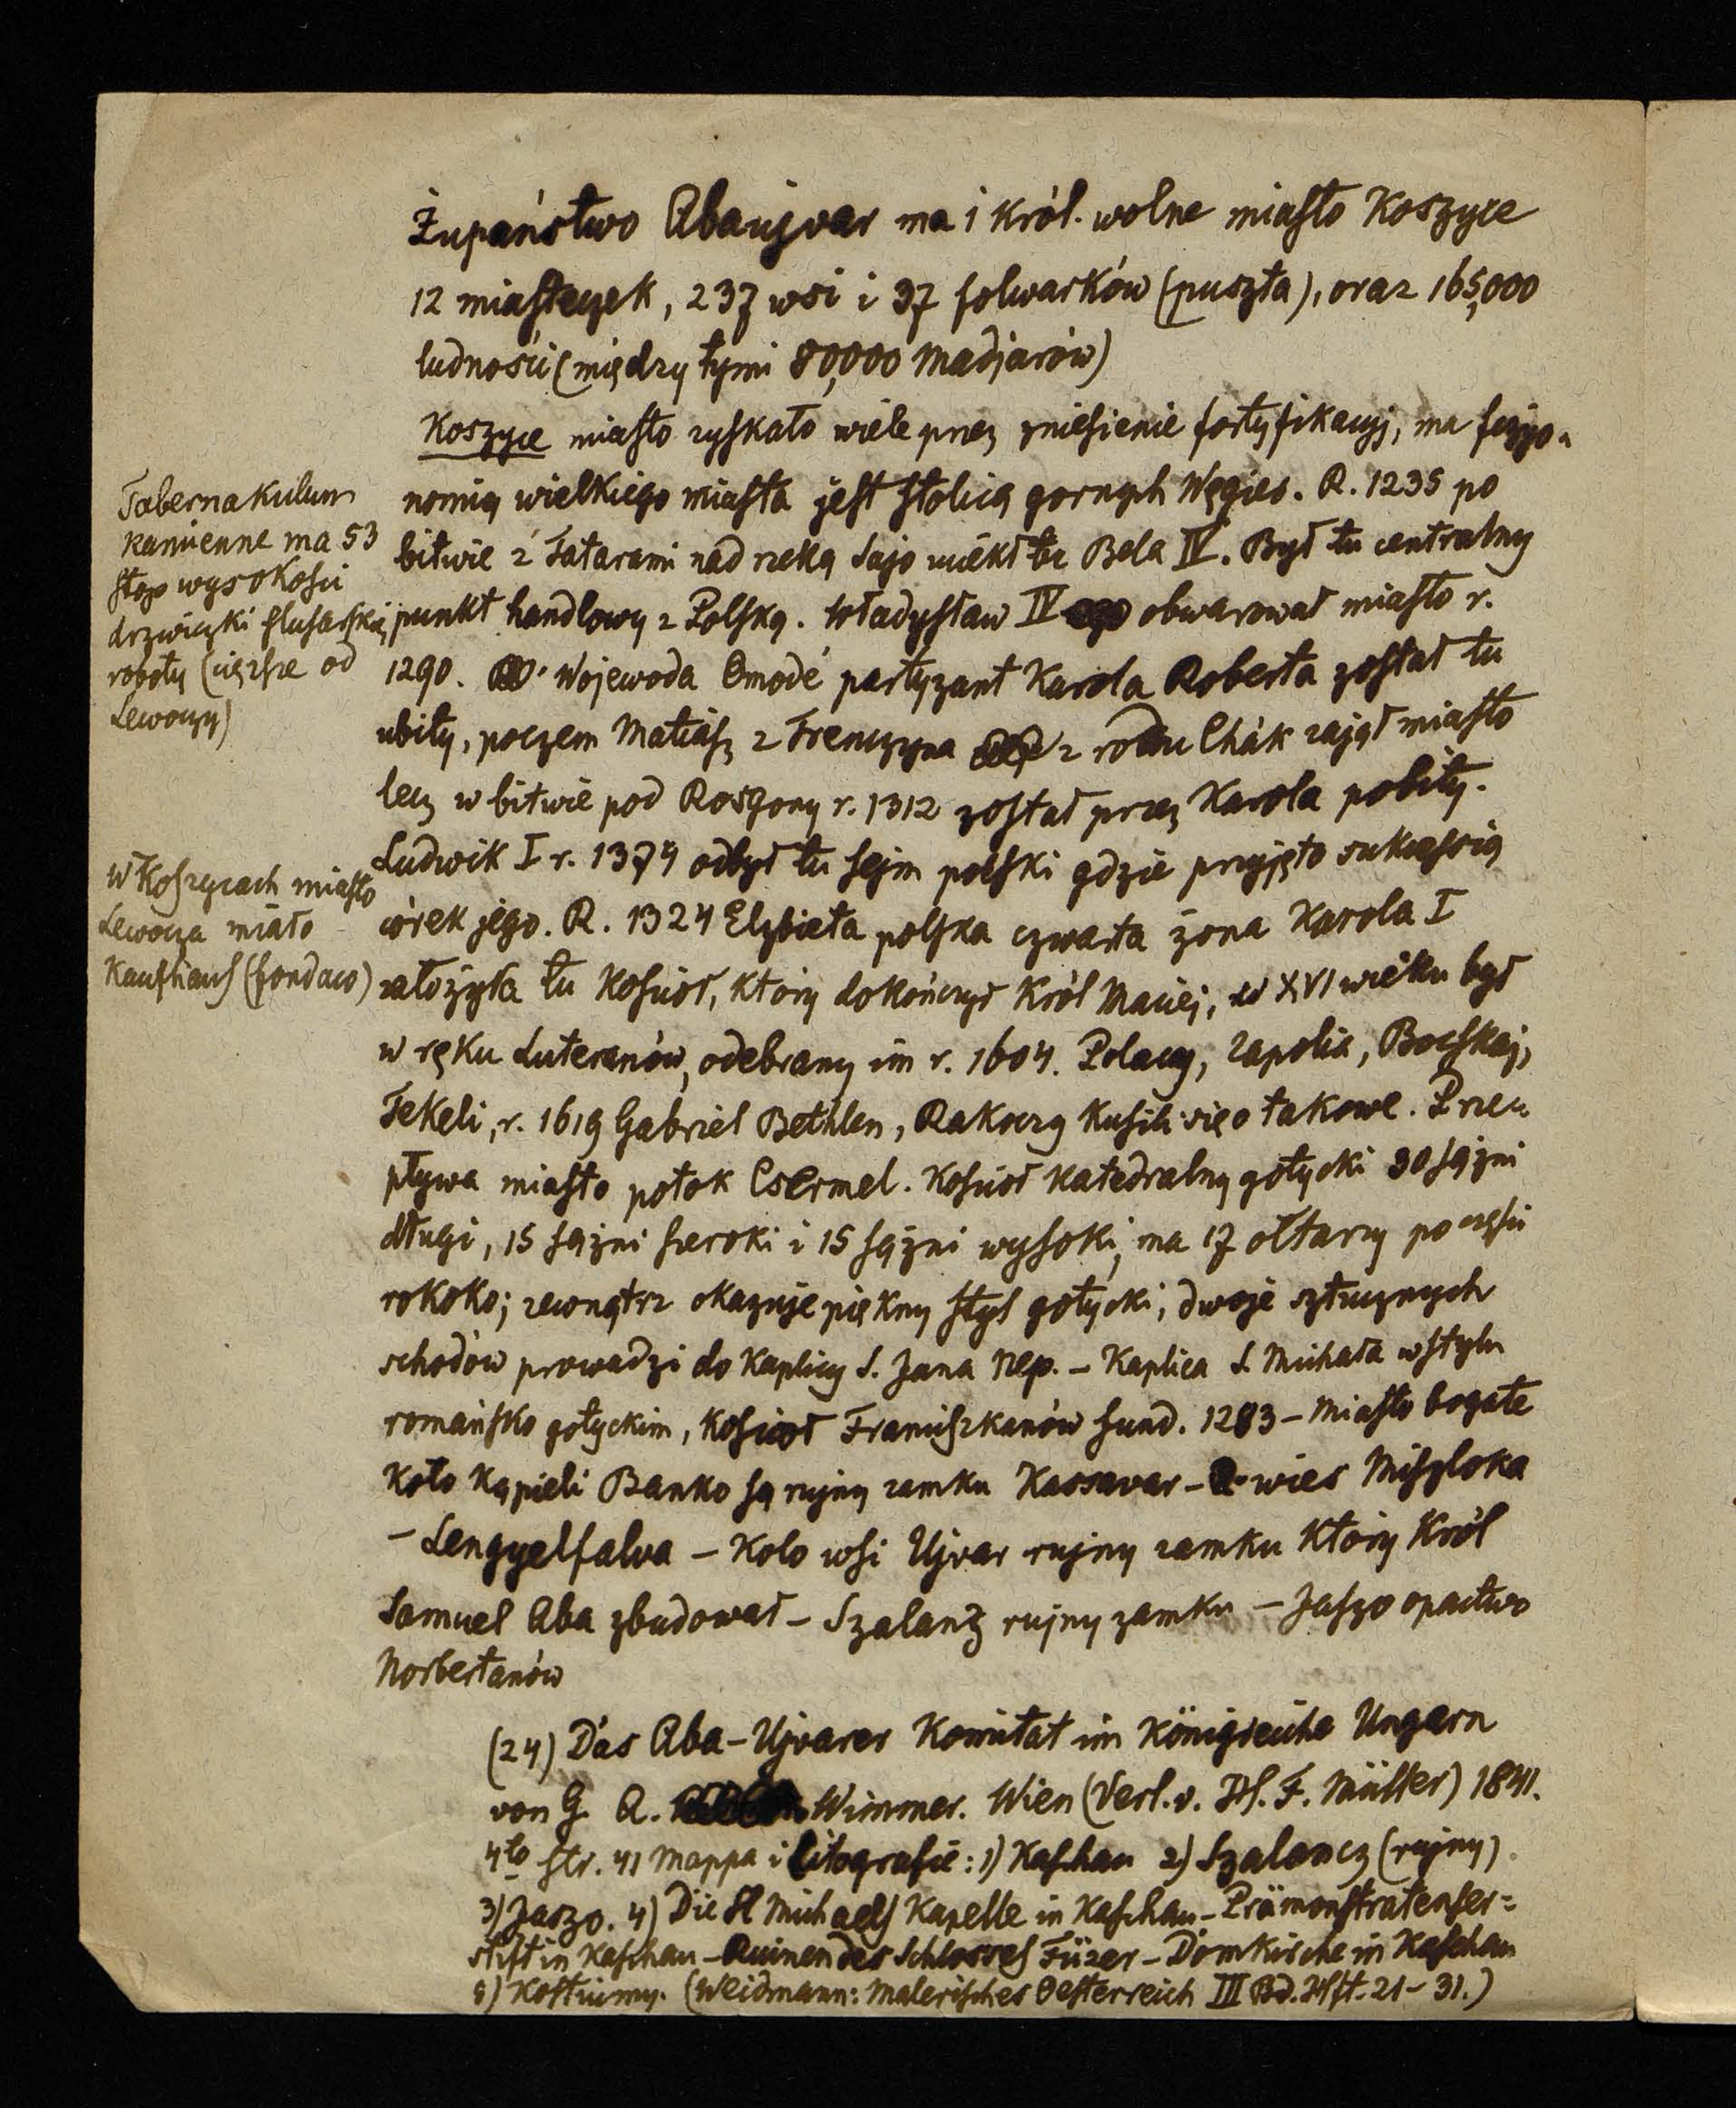 Żupaństwo Abaujvar ma 1 król. wolne miasto Koszyce
12 miasteczek, 237 wsi i 37 folwarków (puszta), oraz 165,000
ludności (między tymi 80,000 Madjarów)
Koszyce miasto zyskało wiele przez zniesienie fortyfikacyj, ma fizyo-
nomią wielkiego miasta jest stolicą gornych Węgier. R. 1235 po
bitwie z Tatarami nad rzeką Sajo uciekł tu Bela IV. Był tu centralny
punkt handlowy z Polską. Władysław IV obwarował miasto r.
1290. Wojewoda Omodé partyzant Karola Roberta został tu
ubity, poczem Matiasz z Trenczyna z rodu Chák zajął miasto
lecz w bitwie pod Rosgony r. 1312 został przez Karola pobity.
Ludwik I r. 1374 odbył tu sejm polski gdzie przyjęto sukcessią
córek jego. R. 1324 Elżbieta polska czwarta żona Karola I
założyła tu kościoł, ktory dokończył król Maciej, w XVI wieku był
w ręku Luteranów, odebrany im r. 1604. Polacy, Zapolia, Bocskaj,
Tekeli, r. 1619 Gabriel Bethlen, Rakoczy kusili się o takowe. Prze-
pływa miasto potok Csermel. Kościoł katedralny gotycki 30 sążni
długi, 15 sążni szeroki i 15 sążni wysoki, ma 17 ołtarzy po części
rokoko; zewnątrz okazuje piękny styl gotycki, dwoje sztucznych
schodów prowadzi do kaplicy S. Jana Nep. – Kaplica S. Michała w stylu
romańsko gotyckim, kościoł Franciszkanów fund. 1283 – Miasto bogate
Koło kąpieli Banko są rujny zamku Kassavar – wies Miszloka
– Lengyelfalva – Kolo wsi Ujvar rujny zamku ktory król
Samuel Aba zbudował – Szalantz rujny zamku – Jaszo opactwo
Norbertanów
Tabernakulum
kamienne ma 53
stop wysokości
drzwiczki slusarskiej
roboty (cięższe od
Lewoczy)
W Koszycach miasto
Lewocza miało
Kaufhaus (fondaco)
(24) Das Aba-Ujvarer Komitat im Königreiche Ungarn
von G. A. Wimmer. Wien (Verl. v. H. F. Müller) 1841.
4to str. 41 mappa i litografie: 1) Kaschau 2) Szalancz (rujny)
3) Jaszo. 4) Die St Michaels Kapelle in Kaschau – Prämonstratenser-
stift in Kaschau – Ruinen des Schlosses Füzer – Domkirche in Kaschau
8) Kostiumy. (Weidmann: Malerisches Oesterreich III Bd. Hft. 21–31.)